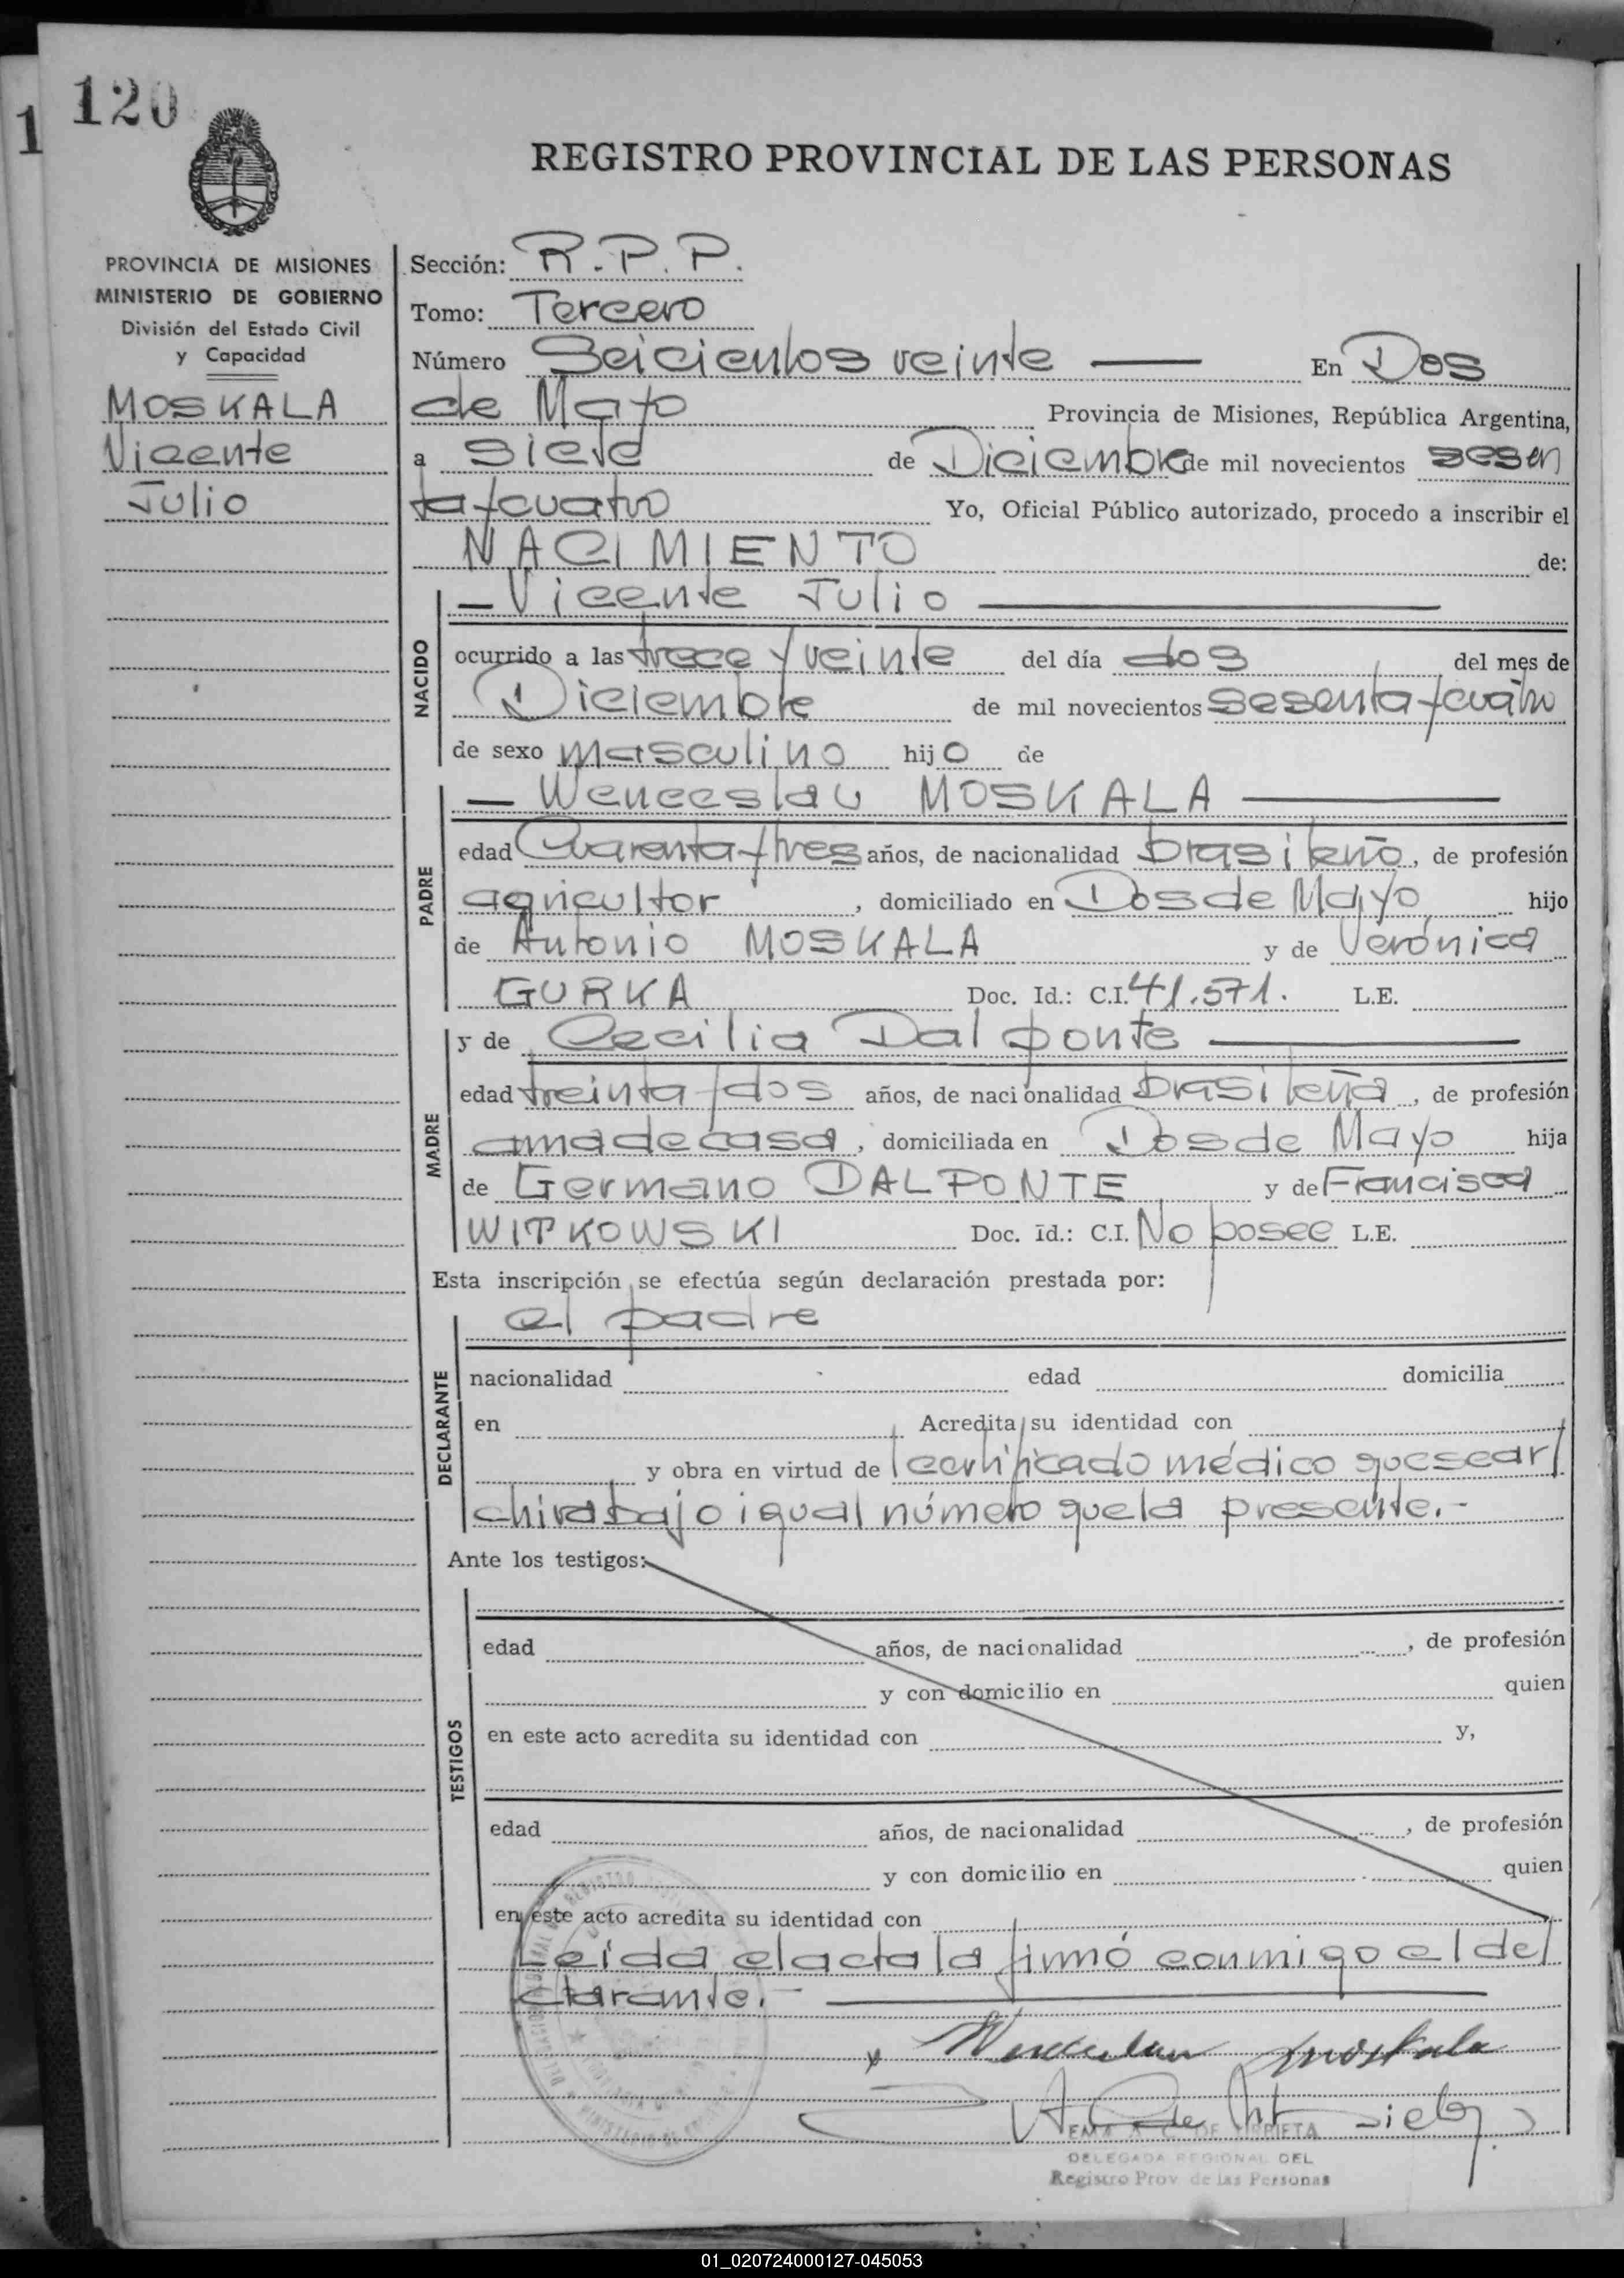 1
120
REGISTRO PROVINCIAL DE LAS PERSONAS
PROVINCIA DE MISIONES
MINISTERIO DE GOBIERNO
División del Estado Civil
y Capacidad
MOSKALA
Vicente
Julio
Sección: R.P.P.
Tomo: Tercero
Número Seicientos veinte — En Dos
de Mayo Provincia de Misiones, República Argentina,
a siete de Diciembre de mil novecientos sesen
ta y cuatro Yo, Oficial Público autorizado, procedo a inscribir el
NACIMIENTO de:
NACIDO
— Vicente Julio —
ocurrido a las trece y veinte del día dos del mes de
Diciembre de mil novecientos sesenta y cuatro
de sexo masculino hijo de
PADRE
— Wenceslau MOSKALA —
edad Cuarenta y tres años, de nacionalidad brasileño, de profesión
agricultor, domiciliado en Dos de Mayo, hijo
de Antonio MOSKALA y de Verónica
GURKA Doc. Id.: C.I. 41.571. L.E.
MADRE
y de Cecilia Dal ponte —
edad treinta y dos años, de nacionalidad brasileña, de profesión
ama de casa, domiciliada en Dos de Mayo hija
de Germano DALPONTE y de Francisca
WITKOWSKI Doc. id.: C.I. No posee L.E.
Esta inscripción se efectúa según declaración prestada por:
DECLARANTE
el padre
nacionalidad edad domicilia
en Acredita su identidad con
y obra en virtud de certificado médico que se ar/
chiva bajo igual número que la presente.-
Ante los testigos:
TESTIGOS
edad años, de nacionalidad , de profesión
y con domicilio en quien
en este acto acredita su identidad con y,
edad años, de nacionalidad , de profesión
y con domicilio en quien
en este acto acredita su identidad con
Leída el acta la firmó conmigo el de/
clarante.- —
Wenceslau Moskala
DELEGADA REGIONAL DEL
Registro Prov. de las Personas
01_020724000127-045053